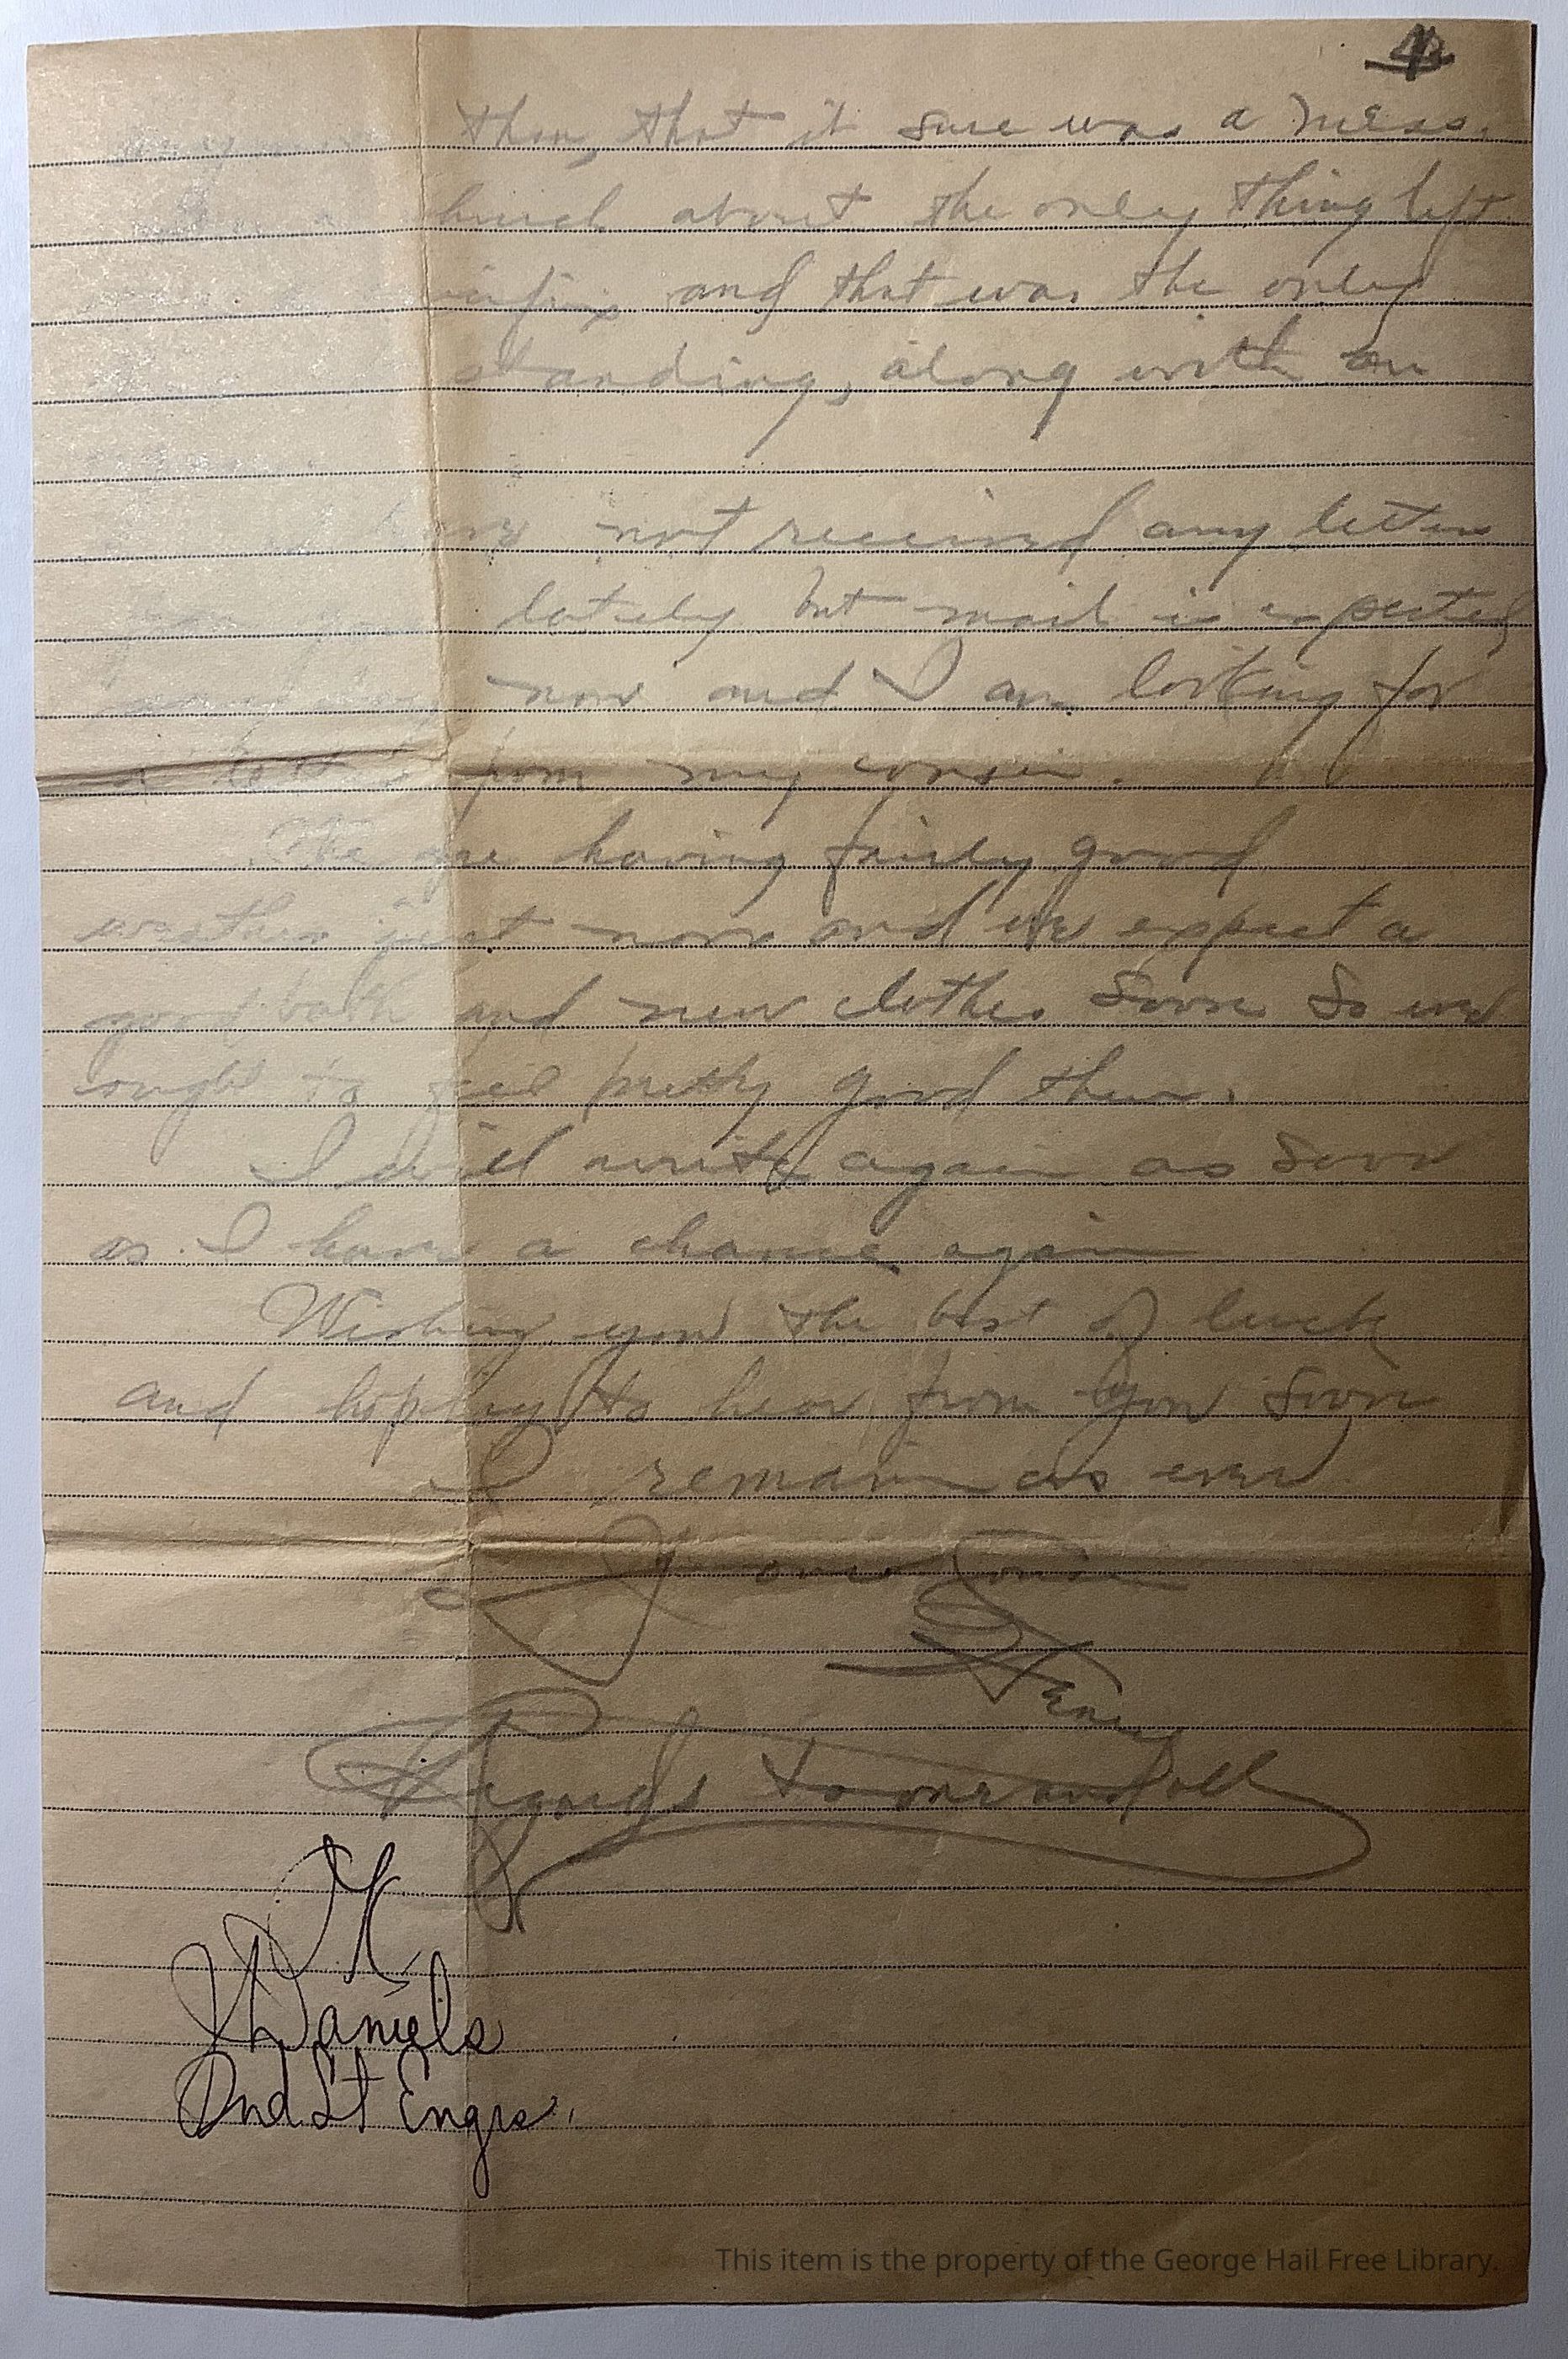 4
that it sure was a mess.
about the only thing left
and that was the only
standing, along with an
have not received any letters
lately but mail is expected
now and I am looking for
a letter from my cousin.
We are having fairly good
weather just now and we expect a
good bath and new clothes soon so we
ought to feel pretty good then.
I will write again as soon
as I have a chance again
Wishing you the best of luck
and hoping to hear from you soon
I remain as ever
Your
Regards to one and all
OK
Daniels
2nd Lt Engrs.
This item is the property of the George Hail Free Library.